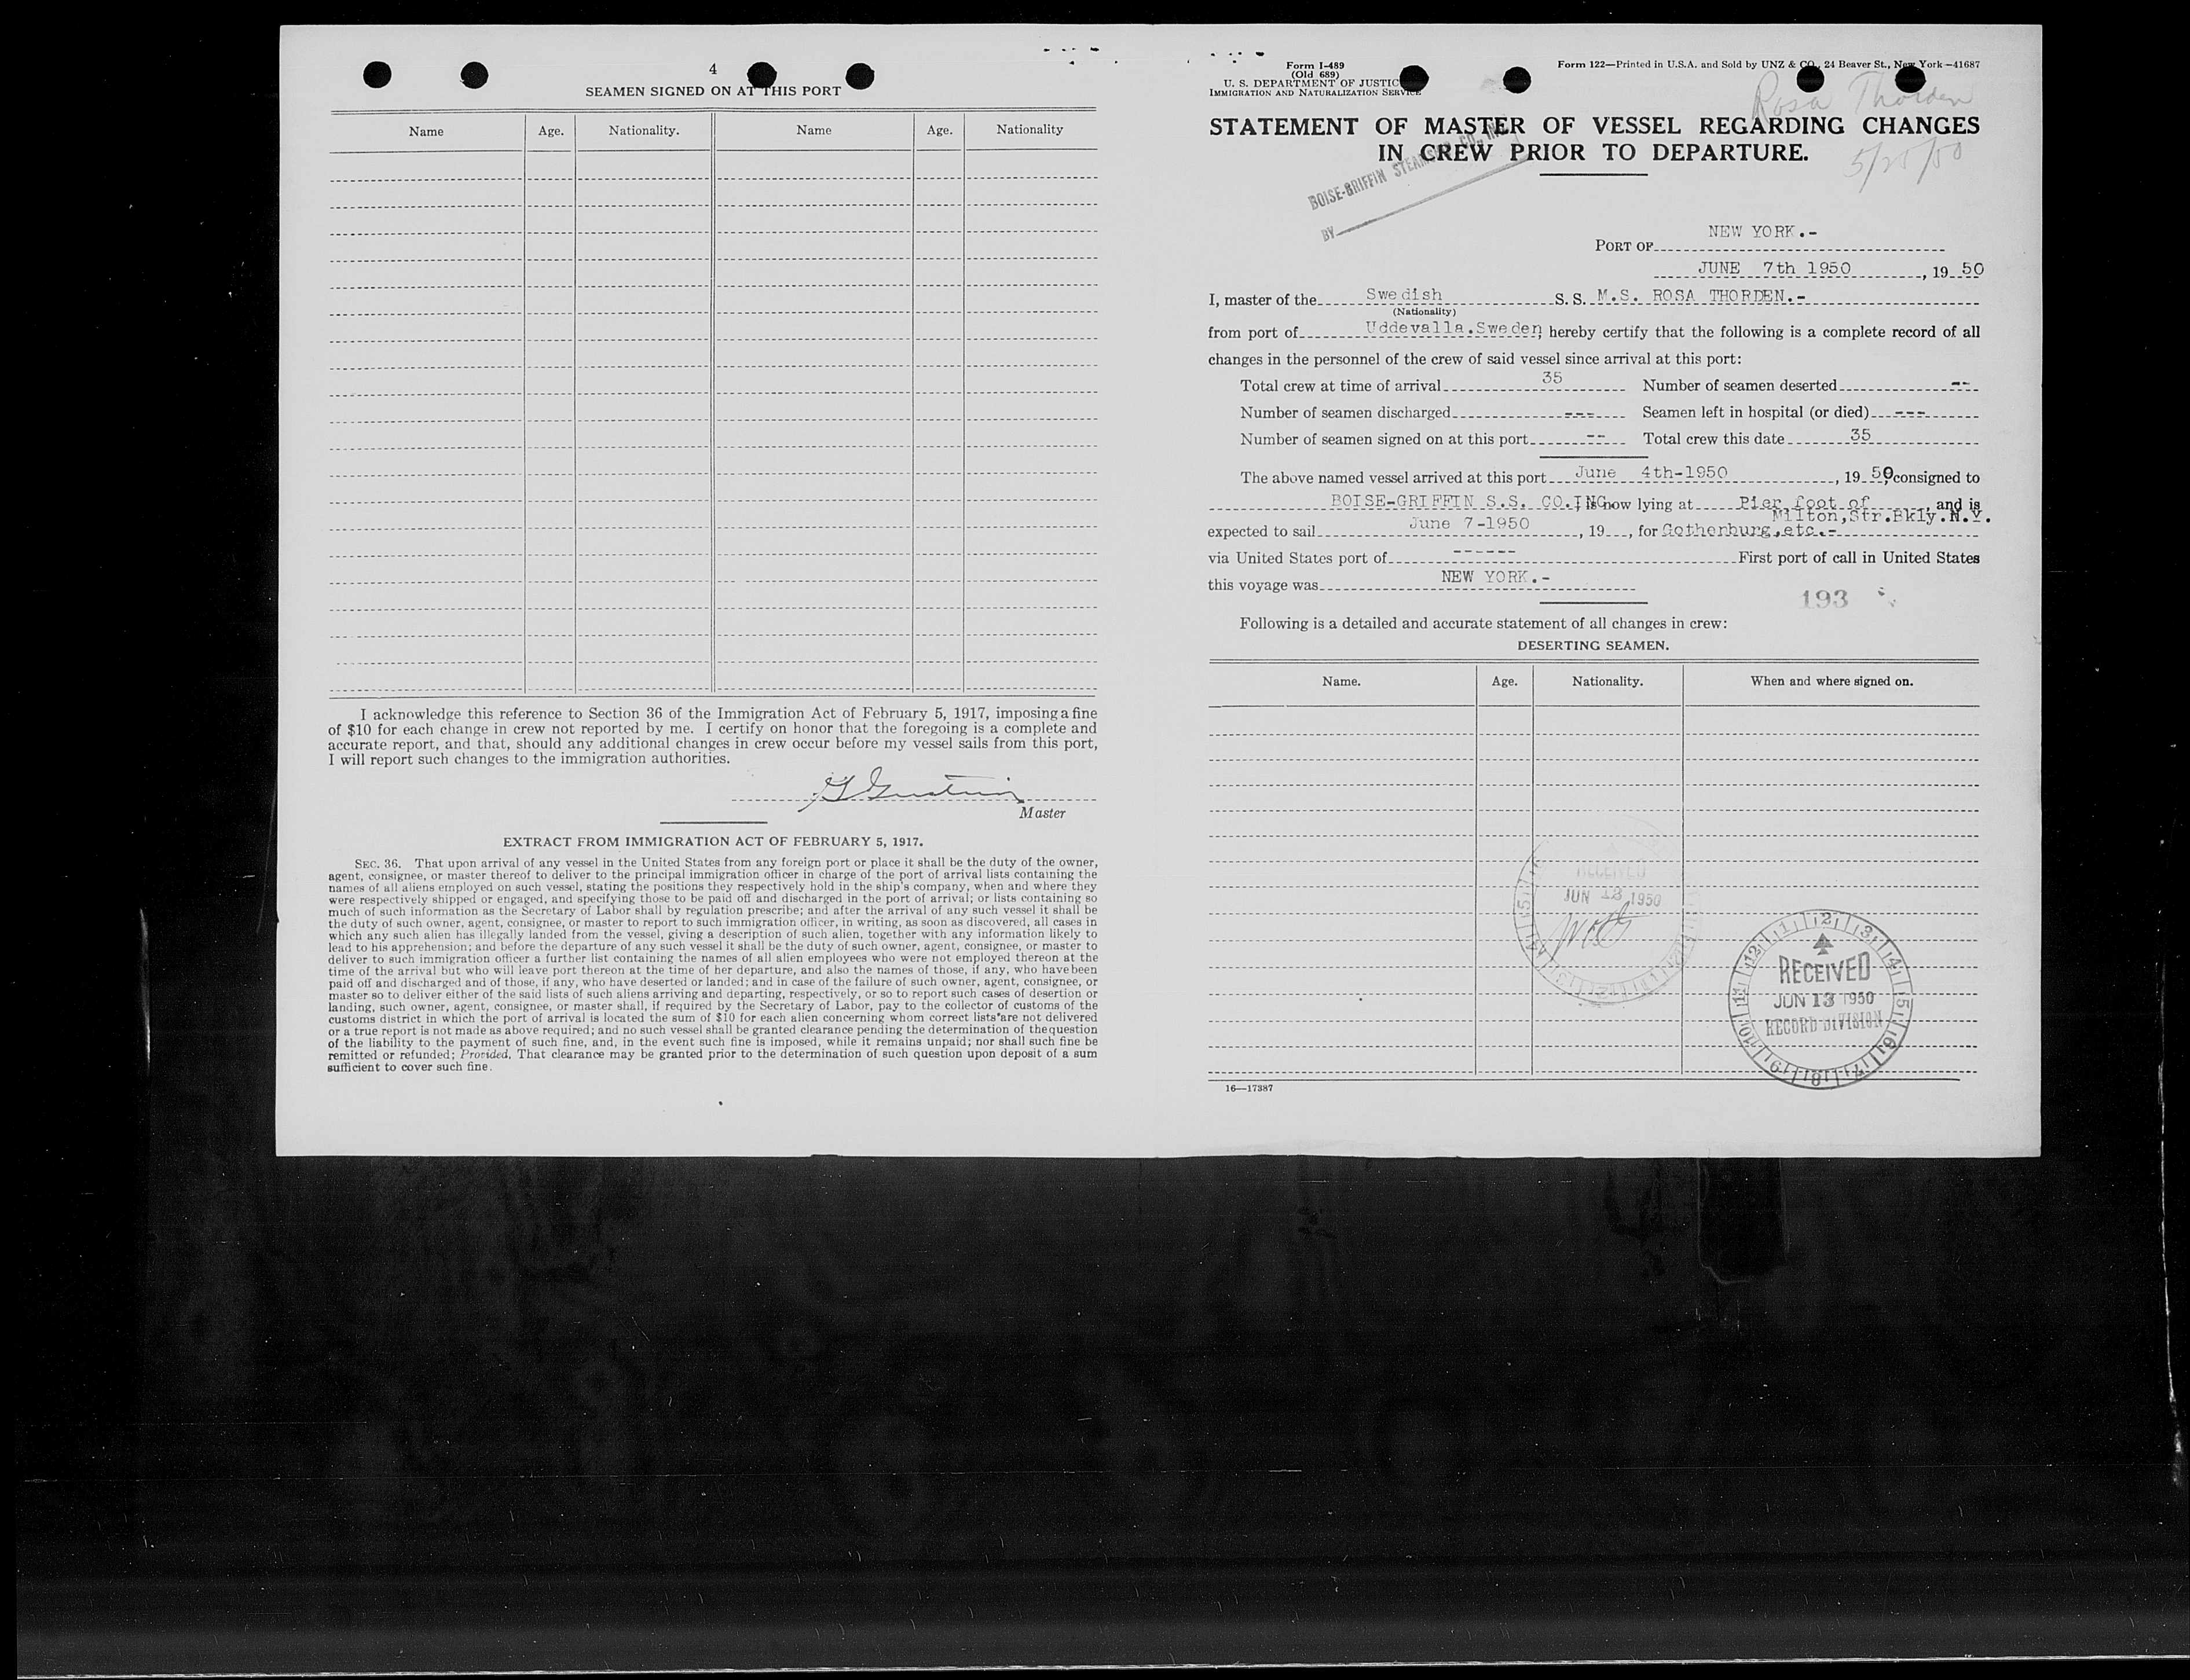 4
SEAMEN SIGNED ON AT THIS PORT
Name Age. Nationality. Name Age. Nationality
I acknowledge this reference to Section 36 of the Immigration Act of February 5, 1917, imposing a fine
of $10 for each change in crew not reported by me. I certify on honor that the foregoing is a complete and
accurate report, and that, should any additional changes in crew occur before my vessel sails from this port,
I will report such changes to the immigration authorities.
Master
EXTRACT FROM IMMIGRATION ACT OF FEBRUARY 5, 1917.
SEC. 36. That upon arrival of any vessel in the United States from any foreign port or place it shall be the duty of the owner,
agent, consignee, or master thereof to deliver to the principal immigration officer in charge of the port of arrival lists containing the
names of all aliens employed on such vessel, stating the positions they respectively hold in the ship's company, when and where they
were respectively shipped or engaged, and specifying those to be paid off and discharged in the port of arrival; or lists containing so
much of such information as the Secretary of Labor shall by regulation prescribe; and after the arrival of any such vessel it shall be
the duty of such owner, agent, consignee, or master to report to such immigration officer, in writing, as soon as discovered, all cases in
which any such alien has illegally landed from the vessel, giving a description of such alien, together with any information likely to
lead to his apprehension; and before the departure of any such vessel it shall be the duty of such owner, agent, consignee, or master to
deliver to such immigration officer a further list containing the names of all alien employees who were not employed thereon at the
time of the arrival but who will leave port thereon at the time of her departure, and also the names of those, if any, who have been
paid off and discharged and of those, if any, who have deserted or landed; and in case of the failure of such owner, agent, consignee, or
master so to deliver either of the said lists of such aliens arriving and departing, respectively, or so to report such cases of desertion or
landing, such owner, agent, consignee, or master shall, if required by the Secretary of Labor, pay to the collector of customs of the
customs district in which the port of arrival is located the sum of $10 for each alien concerning whom correct lists are not delivered
or a true report is not made as above required; and no such vessel shall be granted clearance pending the determination of the question
of the liability to the payment of such fine, and, in the event such fine is imposed, while it remains unpaid; nor shall such fine be
remitted or refunded; Provided, That clearance may be granted prior to the determination of such question upon deposit of a sum
sufficient to cover such fine.
Form I-489
(Old 689)
U. S. DEPARTMENT OF JUSTIC
IMMIGRATION AND NATURALIZATION SERVICE
Form 122—Printed in U.S.A. and Sold by UNZ & CO., 24 Beaver St., New York—41687
Rosa Thorden
STATEMENT OF MASTER OF VESSEL REGARDING CHANGES
IN CREW PRIOR TO DEPARTURE.
BOISE-GRIFFIN STEAMSHIP CO., INC.
BY
PORT OF NEW YORK.-
JUNE 7th 1950, 19 50
I, master of the Swedish S. S. M.S. ROSA THORDEN.-
(Nationality)
from port of Uddevalla.Sweden, hereby certify that the following is a complete record of all
changes in the personnel of the crew of said vessel since arrival at this port:
Total crew at time of arrival 35 Number of seamen deserted --
Number of seamen discharged --- Seamen left in hospital (or died) ---
Number of seamen signed on at this port -- Total crew this date 35
The above named vessel arrived at this port June 4th-1950, 19 50, consigned to
BOISE-GRIFFIN S.S. CO.INC., is now lying at Pier, foot of, and is
Milton,Str.Bkly.N.Y.
expected to sail June 7-1950, 19 , for Gothenburg,etc.-
via United States port of ------ First port of call in United States
this voyage was NEW YORK.-
193
Following is a detailed and accurate statement of all changes in crew:
DESERTING SEAMEN.
Name. Age. Nationality. When and where signed on.
RECEIVED
JUN 13 1950
RECEIVED
JUN 13 1950
RECORD DIVISION
16—17387